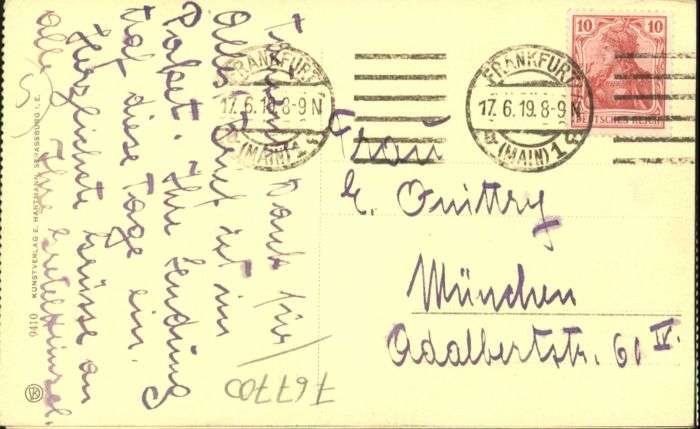 für
Alles ist im
Paket. Ihre Sendung
traf diese Tage ein.
Herzlichste Grüsse an
alle Ihre
FRANKFURT
17.6.19.8-9 N
(MAIN) 1
FRANKFURT
17.6.19.8-9 N
(MAIN) 1
10 10
DEUTSCHES REICH
Frau
E. Quittry
München
Adalbertstr. 60 IV.
76770
9410 KUNSTVERLAG E. HARTMANN, STRASSBURG I. E.